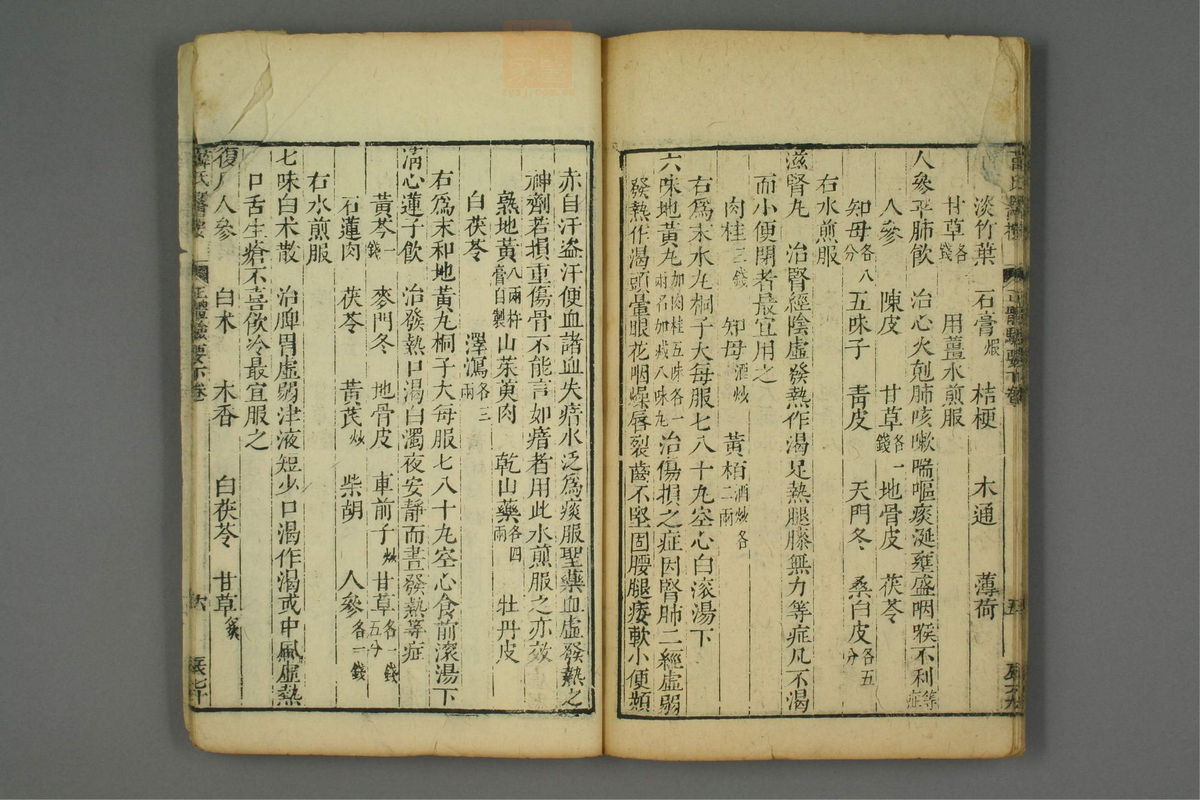 淡竹葉　石膏煅　桔梗　木通　薄荷
甘草各錢　用薑水煎服
人參平肺飲　治心火剋肺咳嗽喘嘔痰涎壅盛咽喉不利等症
人參　陳皮　甘草各一錢　地骨皮　茯苓
知母各八分　五味子　青皮　天門冬　桑白皮各五分
右水煎服
滋腎丸　治腎經陰虛發熱作渴足熱腿膝無力等症凡不渴
而小便閉者最宜用之
肉桂三錢　知母酒炒　黃柏酒炒各二兩
右爲末水丸桐子大每服七八十丸空心白滾湯下
六味地黃丸加肉桂五味各一兩名加減八味丸　治傷損之症因腎肺二經虛弱
發熱作渴頭暈眼花咽燥唇裂齒不堅固腰腿痿軟小便頻
赤自汗盜汗便血諸血失瘖水泛爲痰服聖藥血虛發熱之
神劑若損重傷骨不能言如瘖者用此水煎服之亦效
熟地黃八兩杵膏自製　山茱萸肉　乾山藥各四兩　牡丹皮
白茯苓　澤瀉各三兩
右爲末和地黃丸桐子大每服七八十丸空心食前滾湯下
清心蓮子飲　治發熱口渴白濁夜安靜而晝發熱等症
黃芩一錢　麥門冬　地骨皮　車前子炒　甘草各一錢五分
石蓮肉　茯苓　黃芪炒　柴胡　人參各一錢
右水煎服
七味白术散　治脾胃虛弱津液短少口渴作渴或中風虛熱
口舌生瘡不喜飲冷最宜服之
人參　白术　木香　白茯苓　甘草
正體類要下卷
五
六